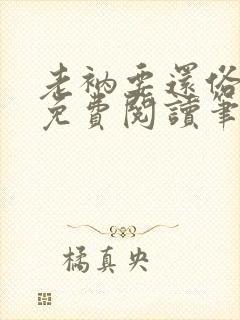 老衲要還俗
免費閱讀筆
橘真央